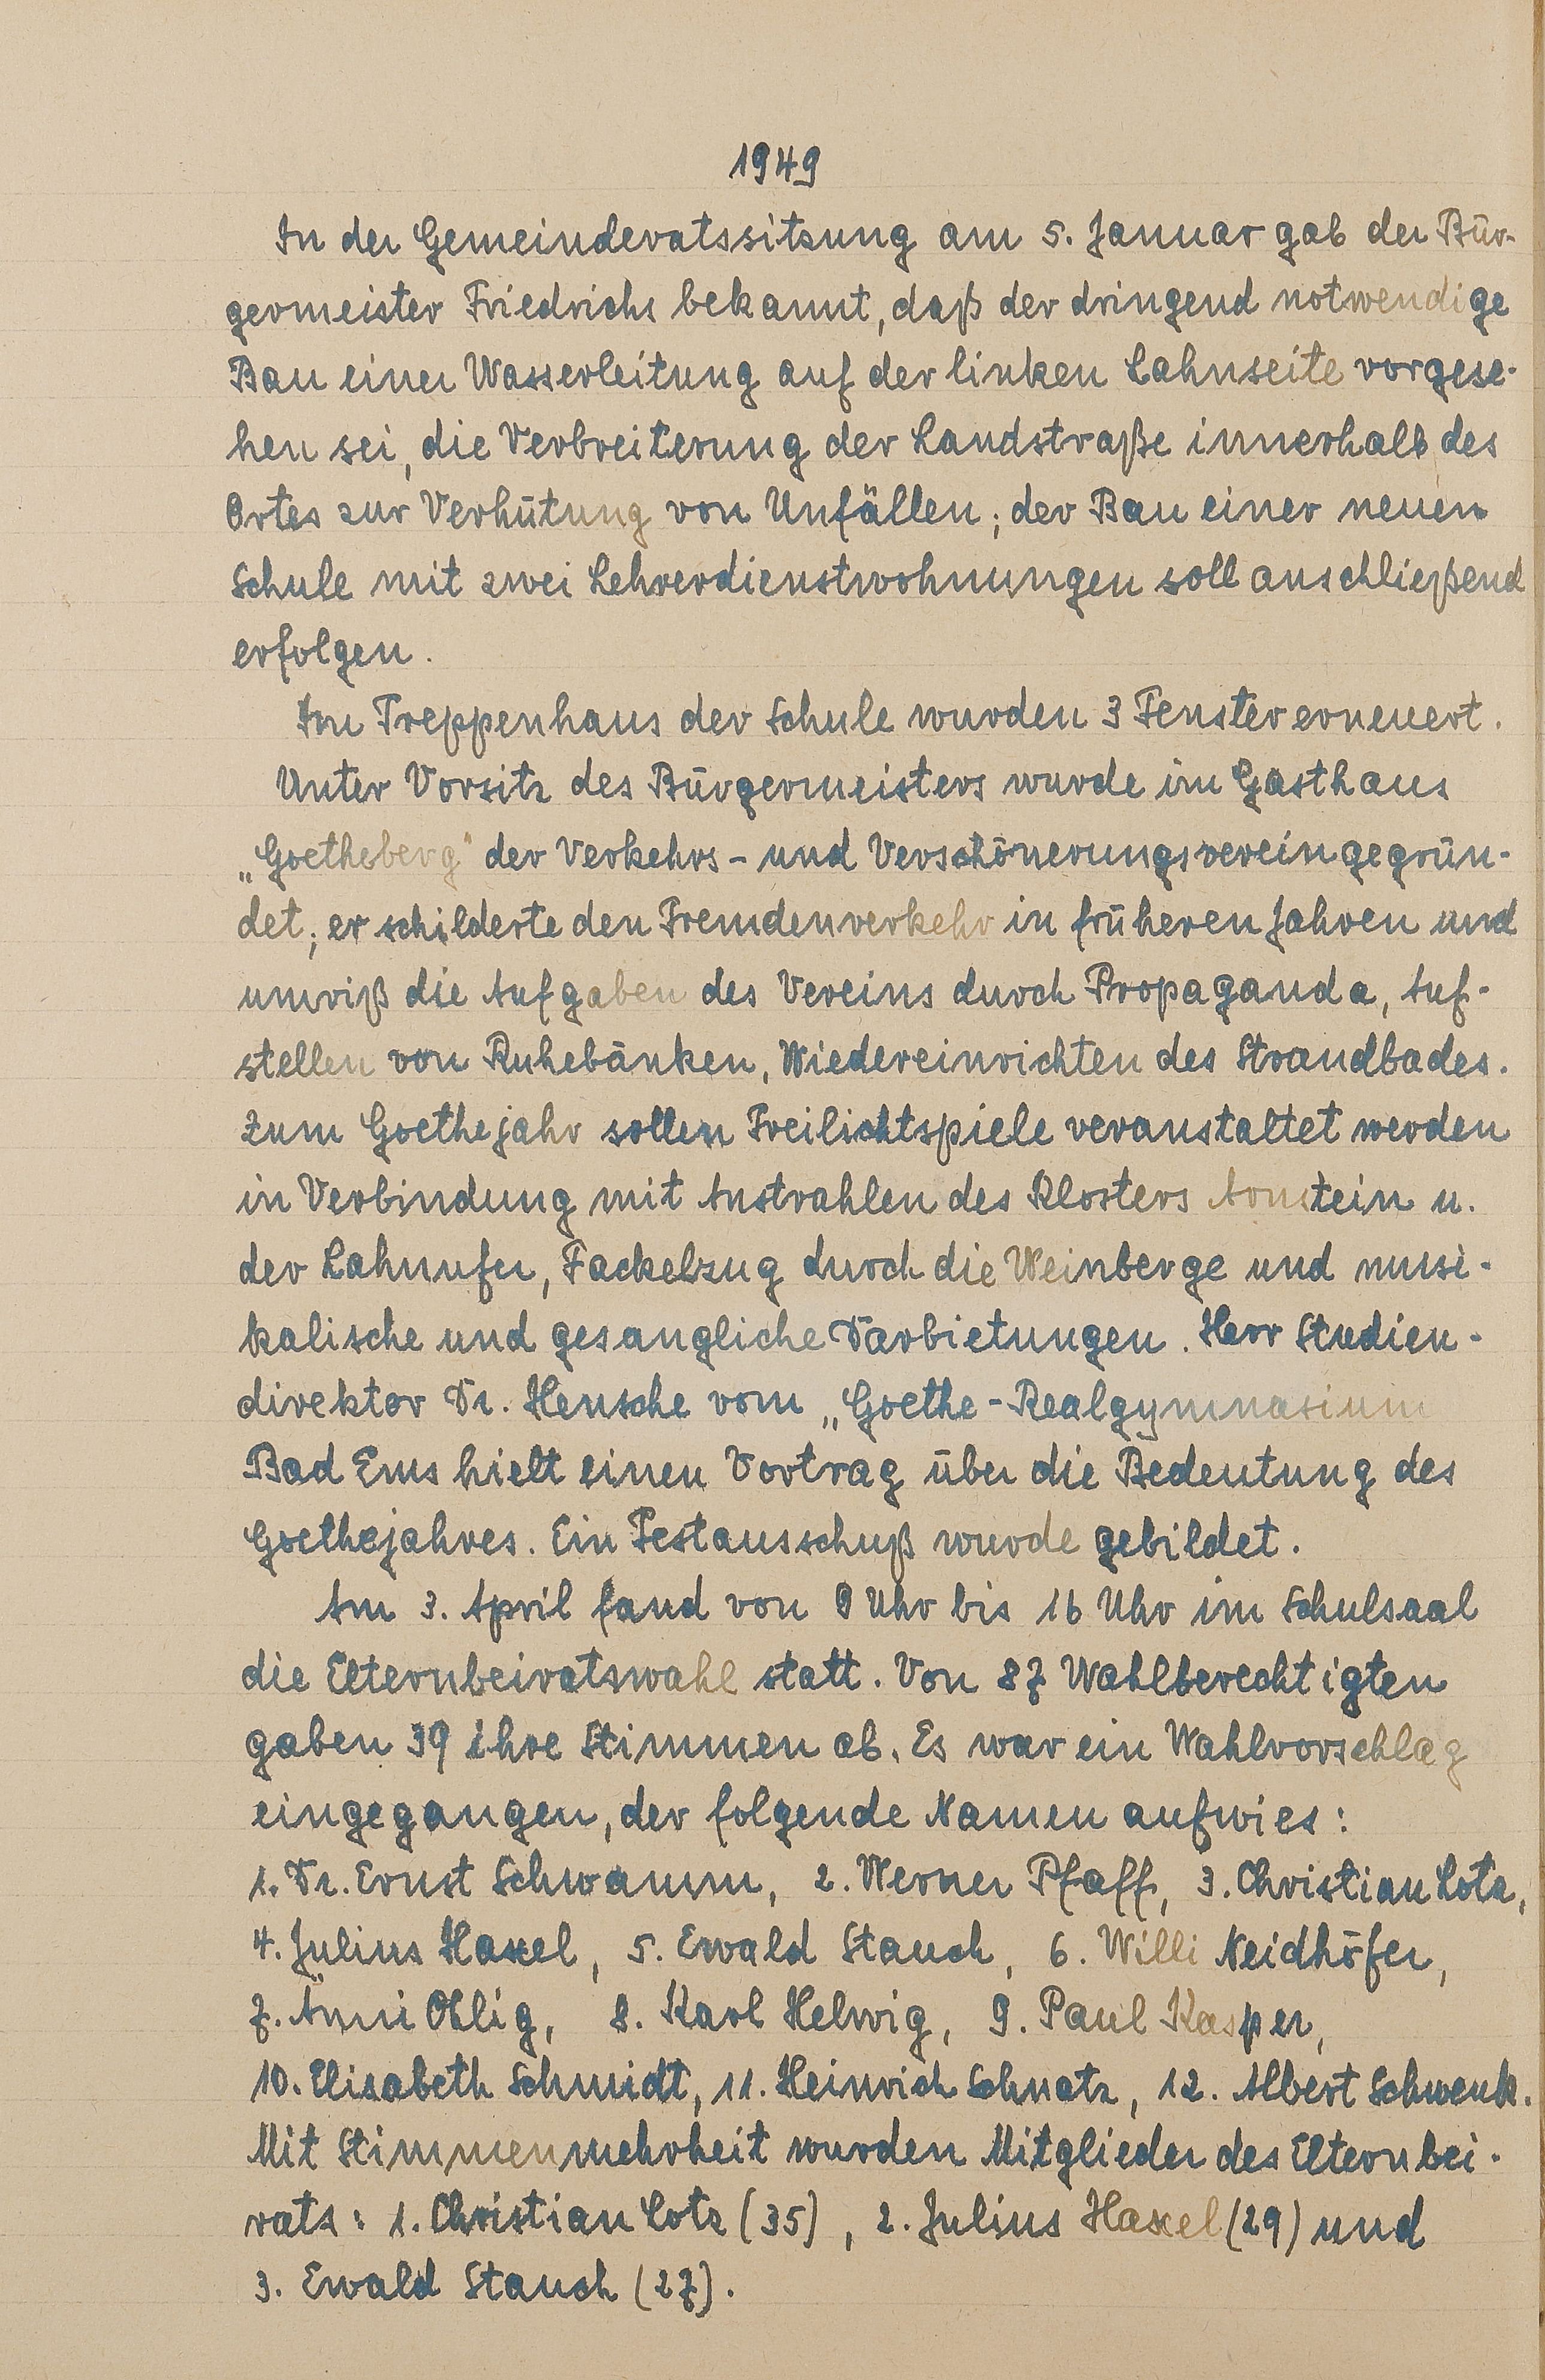 1949
In der Gemeinderatssitzung am 5. Januar gab der Bür-
germeister Friedrichs bekannt, daß der dringend notwendige
Bau einer Wasserleitung auf der linken Lahnseite vorgese-
hen sei, die Verbreiterung der Landstraße innerhalb des
Ortes zur Verhütung von Unfällen; der Bau einer neuen
Schule mit zwei Lehrerdienstwohnungen soll anschließend
erfolgen.
Im Treppenhaus der Schule wurden 3 Fenster erneuert.
Unter Vorsitz des Bürgermeisters wurde im Gasthaus
„Goetheberg“ der Verkehrs- und Verschönerungsverein gegrün-
det; er schilderte den Fremdenverkehr in früheren Jahren und
umriß die Aufgaben des Vereins durch Propaganda, Auf-
stellen von Ruhebänken, Wiedereinrichten des Strandbades.
Zum Goethejahr sollen Freilichtspiele veranstaltet werden
in Verbindung mit Anstrahlen des Klosters Arnstein u.
der Lahnufer, Fackelzug durch die Weinberge und musi-
kalische und gesangliche Darbietungen. Herr Studien-
direktor Dr. Hensche vom „Goethe-Realgymnasium
Bad Ems hielt einen Vortrag über die Bedeutung des
Goethejahres. Ein Festausschuß wurde gebildet.
Am 3. April fand von 9 Uhr bis 16 Uhr im Schulsaal
die Elternbeiratswahl statt. Von 87 Wahlberechtigten
gaben 39 ihre Stimmen ab. Es war ein Wahlvorschlag
eingegangen, der folgende Namen aufwies:
1. Dr. Ernst Schwamm, 2. Werner Pfaff, 3. Christian Lotz,
4. Julius Haxel, 5. Ewald Stauch, 6. Willi Neidhöfer,
7. Änni Ohlig, 8. Karl Helwig, 9. Paul Kasper,
10. Elisabeth Schmidt, 11. Heinrich Schnatz, 12. Albert Schwenk.
Mit Stimmenmehrheit wurden Mitglieder des Elternbei-
rats: 1. Christian Lotz (35), 2. Julius Haxel (29) und
3. Ewald Stauch (27).